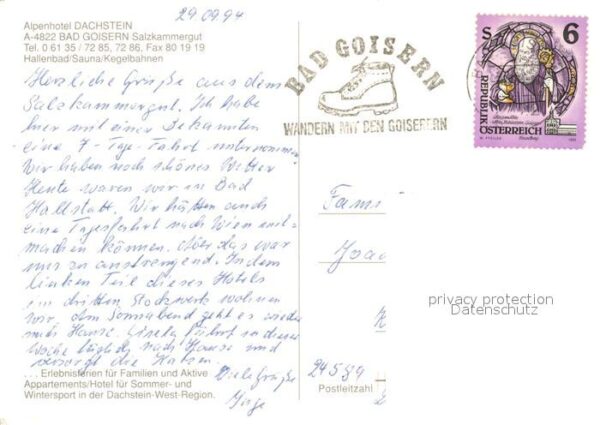 29.09.94
Alpenhotel DACHSTEIN
A-4822 BAD GOISERN Salzkammergut
Tel. 0 61 35 / 72 85, 72 86, Fax 80 19 19
Hallenbad/Sauna/Kegelbahnen
Herzliche Grüße aus dem
Salzkammergut. Ich habe
hier mit einer Bekannten
eine 7-Tage-Fahrt unternommen
Wir haben noch schönes Wetter
Heute waren wir in Bad
Hallstatt. Wir hätten auch
eine Tagesfahrt nach Wien mit
machen können. Aber das war
uns zu anstrengend. In dem
linken Teil dieses Hotels
im dritten Stockwerk wohnen
wir. Am Sonnabend geht es wieder
nach Hause. Gisela fährt in dieser
Woche täglich nach Hause und
versorgt die Katzen.
Viele Grüße
Inge
... Erlebnisferien für Familien und Aktive
Appartements/Hotel für Sommer- und
Wintersport in der Dachstein-West-Region.
BAD GOISERN
WANDERN MIT DEN GOISERERN
S 6
REPUBLIK
ÖSTERREICH
Fami
Joac
24589
Postleitzahl
privacy protection
Datenschutz